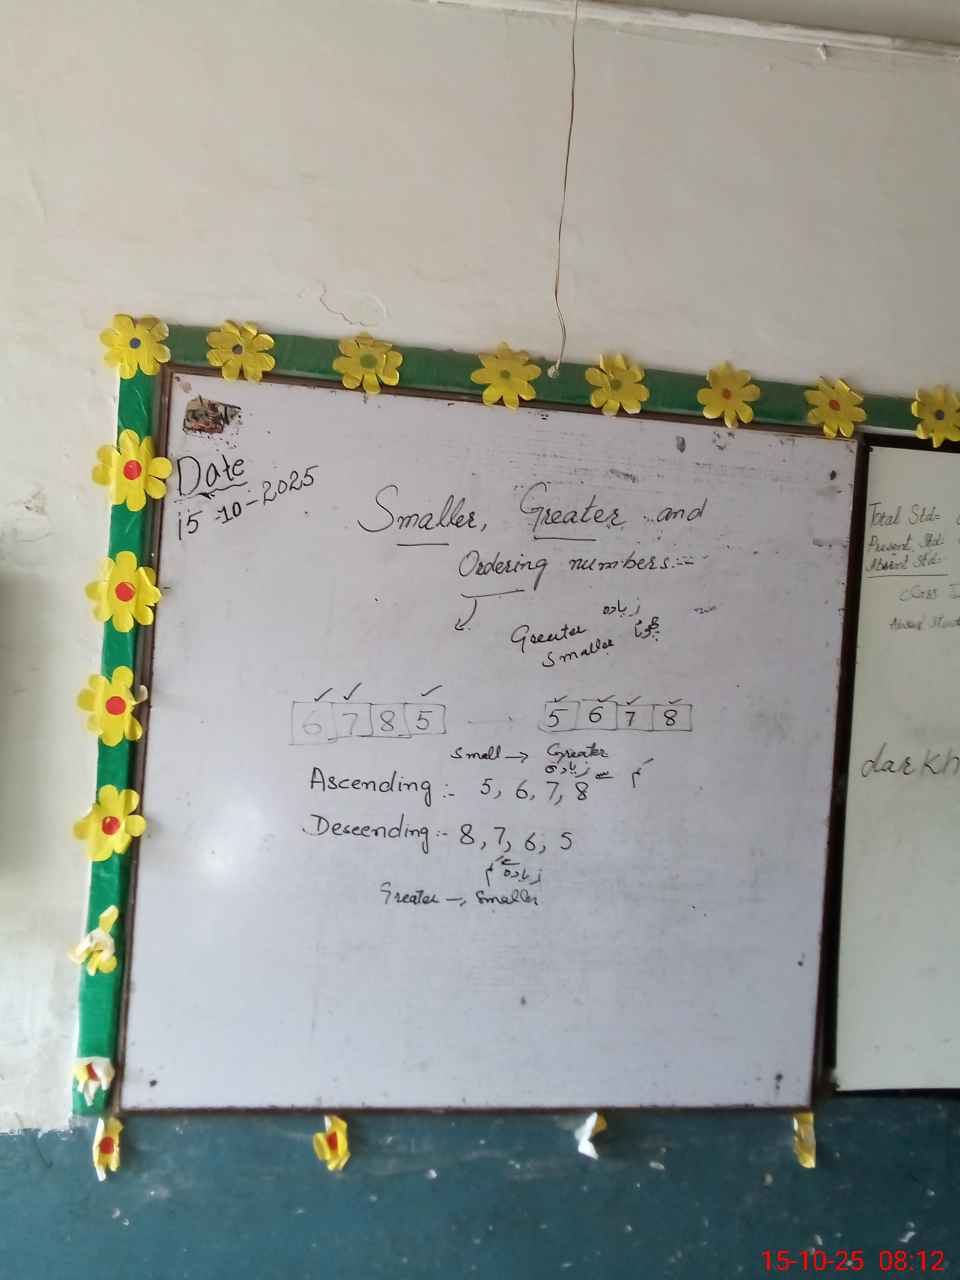 Date
15-10-2025
Smaller, Greater and
Ordering numbers:--
Greater زیادہ
Smaller
6 7 8 5
5 6 7 8
Small → Greater
زیادہ سے کم
Ascending:- 5, 6, 7, 8
Descending:- 8, 7, 6, 5
زیادہ سے کم
Greater → Smaller
Total Std=
Present Std-
Absent Std=
Class
darkh
15-10-25 08:12